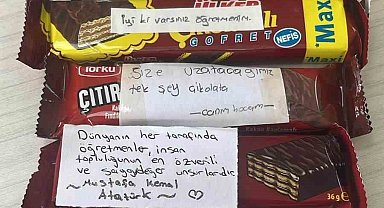 ÜLKER
İyi ki varsınız öğretmenim.
GOFRET
NEFİS
*Maxi
Maxi
Torku
ÇITIR
Size uzatacağımız
tek şey çikolata
—canım hocam—
Dünyanın her tarafında
öğretmenler, insan
topluluğunun en özverili
ve saygıdeğer unsurlarıdır.
~ Mustafa Kemal
Atatürk ~
36 g e